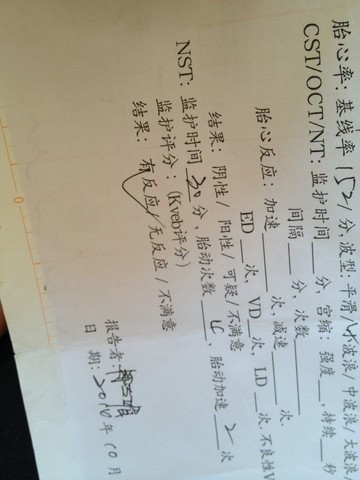 胎心率：基线率 152/分,波型：平滑/小波浪,中波浪/大波浪/
CST/OCT/NT：监护时间___分,宫缩：强度___,持续___秒
间隔___分,次数___
胎心反应：加速___次,减速___次,
ED___次,VD___次,LD___次,不良性V
结果：阴性/阳性/可疑/不满意
NST：监护时间 30 分,胎动次数___,胎动加速 2 次
监护评分：(Kveb评分)
结果：有反应/无反应/不满意
报告者：
日期：2010年10月